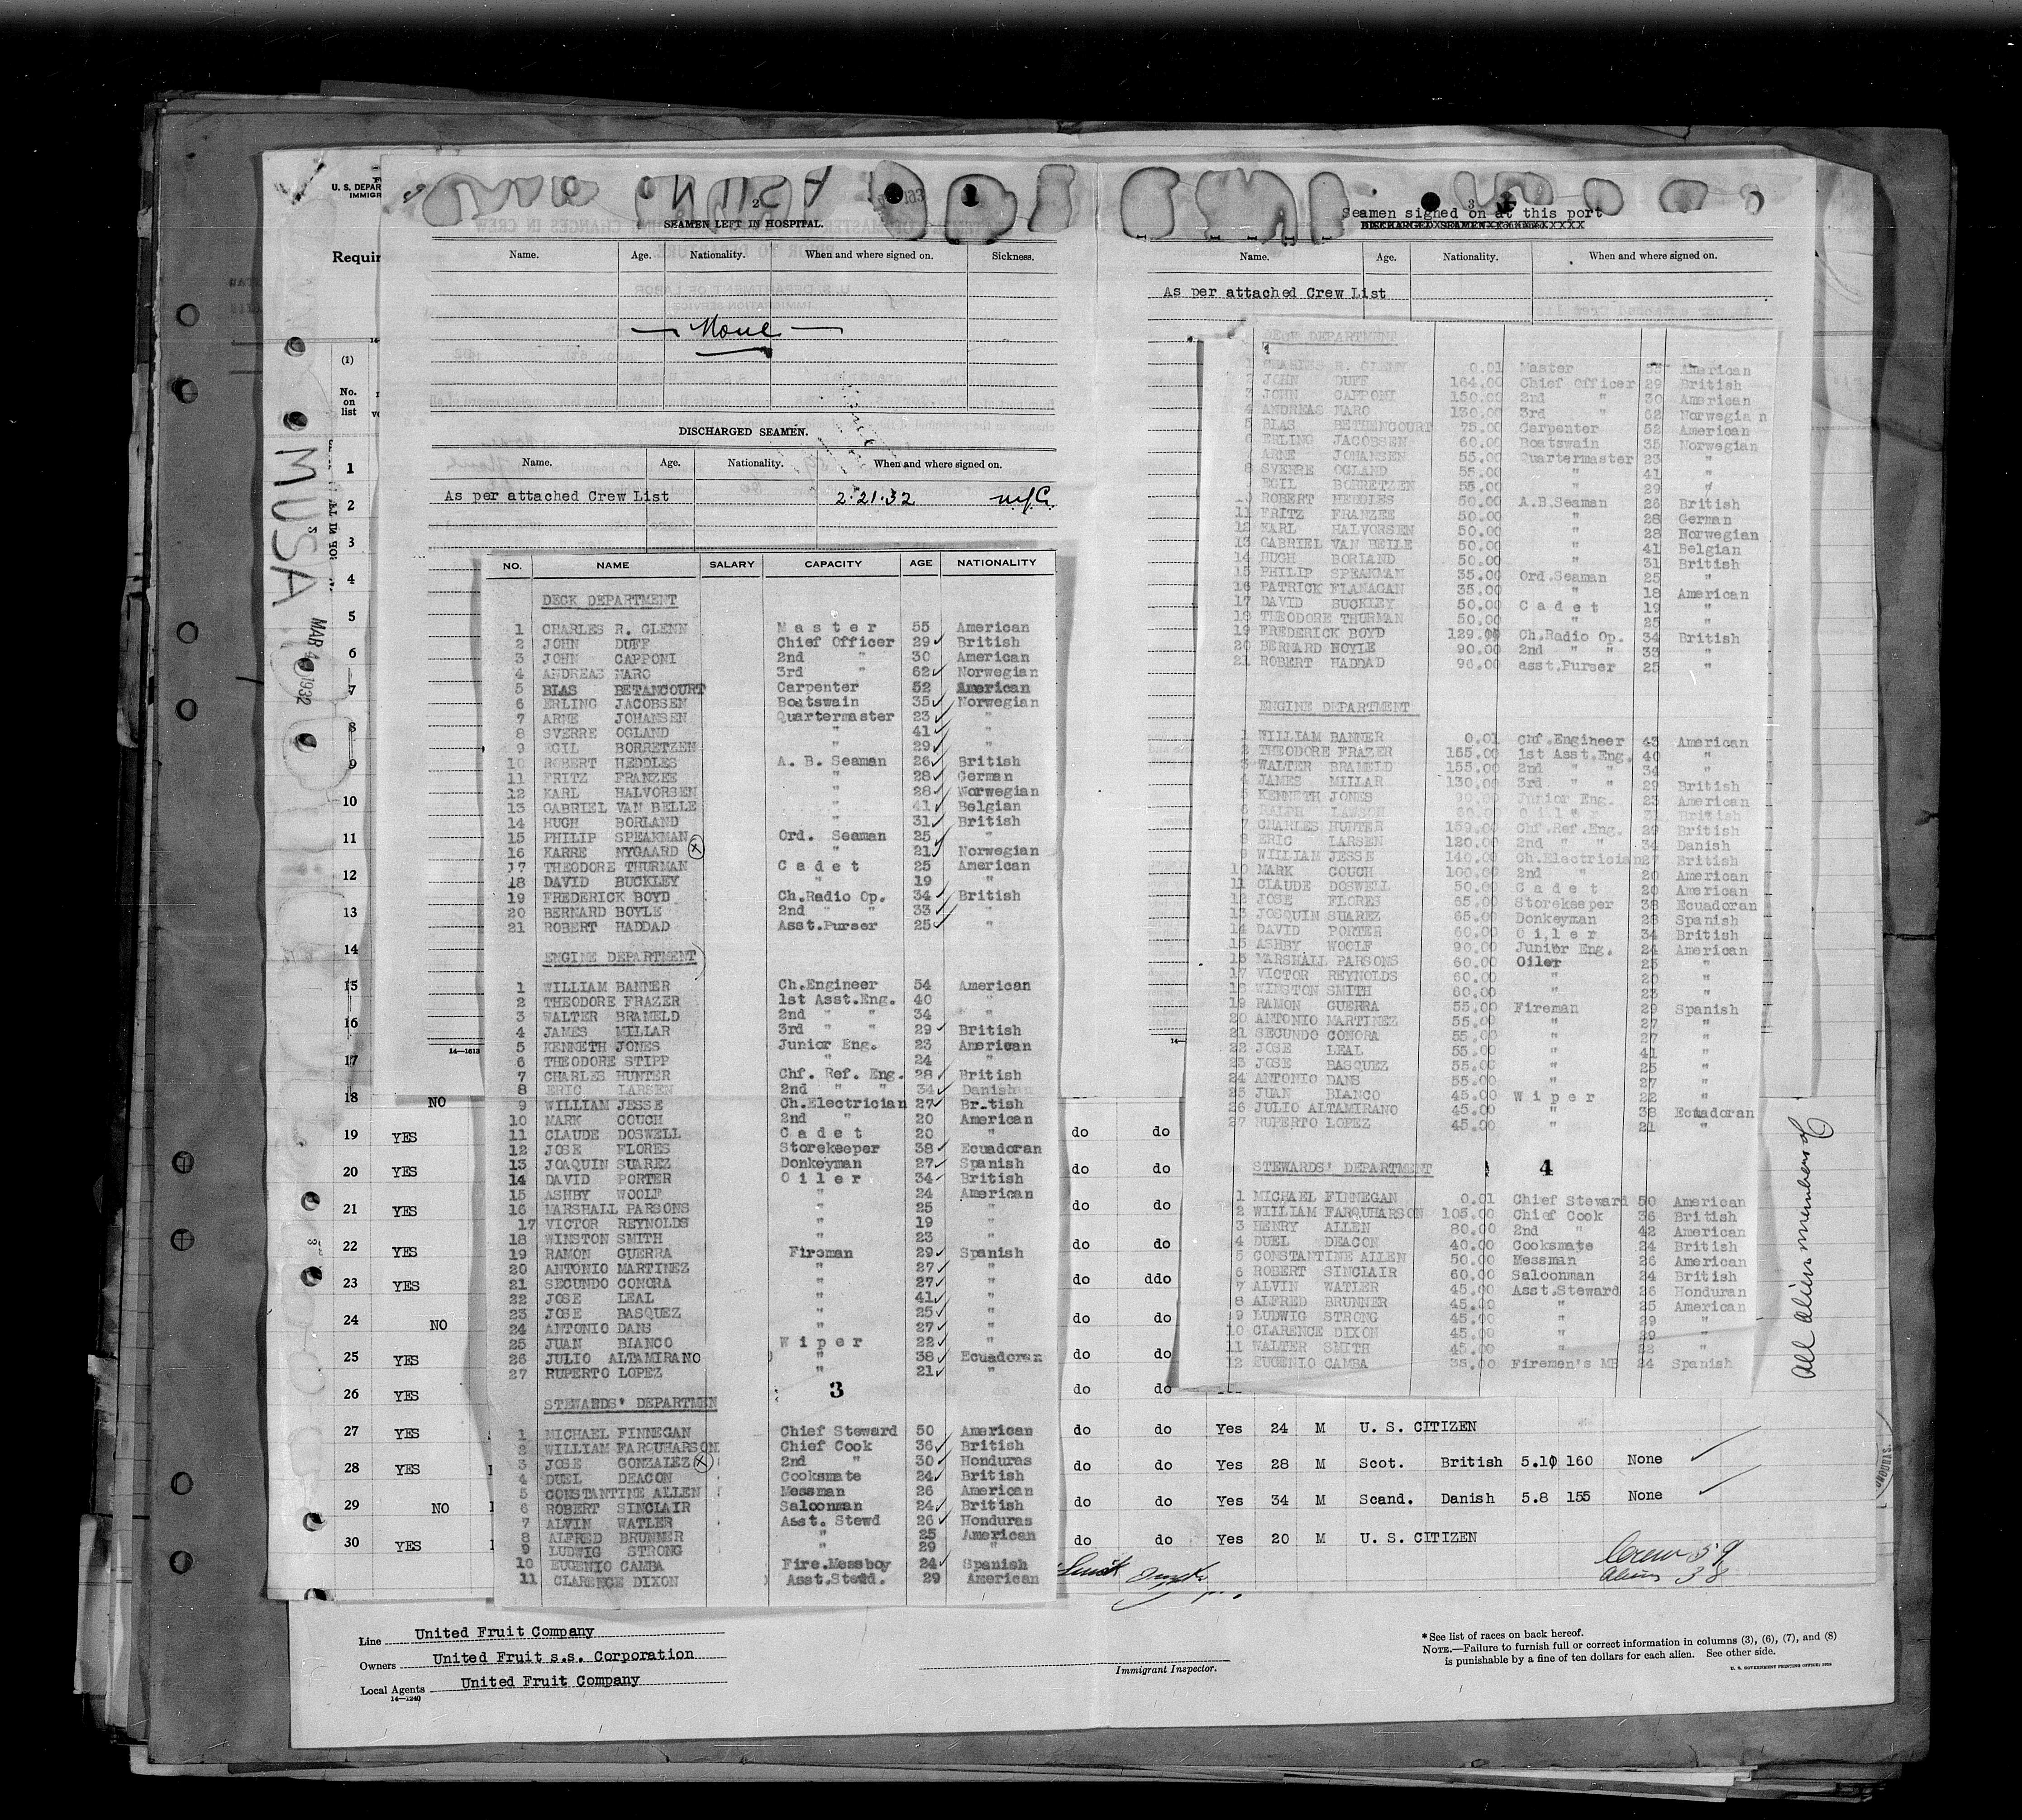 U. S. DEPAR
IMMIGR
Requir
(1)
No.
on
list
MUSA
MAR 1932
2
SEAMEN LEFT IN HOSPITAL.
Name. Age. Nationality. When and where signed on. Sickness.
None
DISCHARGED SEAMEN.
Name. Age. Nationality. When and where signed on.
As per attached Crew List 2.21.32
NO. NAME SALARY CAPACITY AGE NATIONALITY
DECK DEPARTMENT
1 CHARLES R. GLENN Master 55 American
2 JOHN DUFF Chief Officer 29 British
3 JOHN CAPPONI 2nd " 30 American
4 ANDREAS NARO 3rd " 62 Norwegian
5 BLAS BETANCOURT Carpenter 52 American
6 ERLING JACOBSEN Boatswain 35 Norwegian
7 ARNE JOHANSEN Quartermaster 23 "
8 SVERRE OGLAND " 41 "
9 EGIL BORRETZEN " 29 "
10 ROBERT HEDDLES A. B. Seaman 26 British
11 FRITZ FRANZEE " 28 German
12 KARL HALVORSEN " 28 Norwegian
13 GABRIEL VAN BELLE " 41 Belgian
14 HUGH BORLAND " 31 British
15 PHILIP SPEAKMAN Ord. Seaman 25 "
16 KARRE NYGAARD " 21 Norwegian
17 THEODORE THURMAN Cadet 25 American
18 DAVID BUCKLEY " 19 "
19 FREDERICK BOYD Ch.Radio Op. 34 British
20 BERNARD BOYLE 2nd " " 33 "
21 ROBERT HADDAD Asst.Purser 25 "
ENGINE DEPARTMENT
1 WILLIAM BANNER Ch.Engineer 54 American
2 THEODORE FRAZER 1st Asst.Eng. 40 "
3 WALTER BRAMELD 2nd " " 34 "
4 JAMES MILLAR 3rd " " 29 British
5 KENNETH JONES Junior Eng. 23 American
6 THEODORE STIPP " 24 "
7 CHARLES HUNTER Chf. Ref. Eng. 28 British
8 ERIC LARSEN 2nd " " 34 Danish
9 WILLIAM JESSE Ch.Electrician 27 Br.tish
10 MARK COUCH 2nd " 20 American
11 CLAUDE DOSWELL Cadet 20 "
12 JOSE FLORES Storekeeper 38 Ecuadoran
13 JOAQUIN SUAREZ Donkeyman 27 Spanish
14 DAVID PORTER Oiler 34 British
15 ASHBY WOOLF " 24 American
16 MARSHALL PARSONS " 25 "
17 VICTOR REYNOLDS " 19 "
18 WINSTON SMITH " 23 "
19 RAMON GUERRA Fireman 29 Spanish
20 ANTONIO MARTINEZ " 27 "
21 SECUNDO CONORA " 27 "
22 JOSE LEAL " 41 "
23 JOSE BASQUEZ " 25 "
24 ANTONIO DANS " 27 "
25 JUAN BIANCO Wiper 22 "
26 JULIO ALTAMIRANO " 38 Ecuadoran
27 RUPERTO LOPEZ " 21 "
3
STEWARDS' DEPARTMEN
1 MICHAEL FINNEGAN Chief Steward 50 American
2 WILLIAM FARQUHARSON Chief Cook 36 British
3 JOSE GONZALEZ 2nd " 30 Honduras
4 DUEL DEACON Cooksmate 24 British
5 CONSTANTINE ALLEN Messman 26 American
6 ROBERT SINCLAIR Saloonman 24 British
7 ALVIN WATLER Asst. Stewd 26 Honduras
8 ALFRED BRUNNER " 25 American
9 LUDWIG STRONG " 29 "
10 EUGENIO CAMBA Fire.Messboy 24 Spanish
11 CLARENCE DIXON Asst.Stewd. 29 American
3
Seamen signed on at this port
Name. Age. Nationality. When and where signed on.
As per attached Crew List
DECK DEPARTMENT
1 CHARLES R. GLENN 0.01 Master 55 American
2 JOHN DUFF 164.00 Chief Officer 29 British
3 JOHN CAPPONI 150.00 2nd " 30 American
4 ANDREAS NARO 130.00 3rd " 62 Norwegian
5 BLAS BETHENCOURT 75.00 Carpenter 52 American
6 ERLING JACOBSEN 60.00 Boatswain 35 Norwegian
7 ARNE JOHANSEN 55.00 Quartermaster 23 "
8 SVERRE OGLAND 55.00 " 41 "
EGIL BORRETZEN 55.00 " 29 "
10 ROBERT HEDDLES 50.00 A.B.Seaman 26 British
11 FRITZ FRANZEE 50.00 " 28 German
12 KARL HALVORSEN 50.00 " 28 Norwegian
13 GABRIEL VAN BELLE 50.00 " 41 Belgian
14 HUGH BORLAND 50.00 " 31 British
15 PHILIP SPEAKMAN 35.00 Ord.Seaman 25 "
16 PATRICK FLANAGAN 35.00 " 18 American
17 DAVID BUCKLEY 50.00 Cadet 19 "
18 THEODORE THURMAN 50.00 " 25 "
19 FREDERICK BOYD 129.00 Ch.Radio Op. 34 British
20 BERNARD BOYLE 90.00 2nd " " 33 "
21 ROBERT HADDAD 96.00 asst.Purser 25 "
ENGINE DEPARTMENT
1 WILLIAM BANNER 0.01 Chf.Engineer 43 American
2 THEODORE FRAZER 165.00 1st Asst.Eng. 40 "
3 WALTER BRAMELD 155.00 2nd " " 34 "
4 JAMES MILLAR 130.00 3rd " " 29 British
5 KENNETH JONES 90.00 Junior Eng. 23 American
6 RALPH LAWSON 60.00 Oiler 31 British
7 CHARLES HUNTER 159.00 Chf.Ref.Eng. 29 British
8 ERIC LARSEN 120.00 2nd " " 34 Danish
9 WILLIAM JESSE 140.00 Ch.Electrician 27 British
10 MARK COUCH 100.00 2nd " 20 American
11 CLAUDE DOSWELL 50.00 Cadet 20 American
12 JOSE FLORES 65.00 Storekeeper 38 Ecuadoran
13 JOSQUIN SUAREZ 65.00 Donkeyman 28 Spanish
14 DAVID PORTER 60.00 Oiler 34 British
15 ASHBY WOOLF 90.00 Junior Eng. 24 American
16 MARSHALL PARSONS 60.00 Oiler 25 "
17 VICTOR REYNOLDS 60.00 " 20 "
18 WINSTON SMITH 60.00 " 23 "
19 RAMON GUERRA 55.00 Fireman 29 Spanish
20 ANTONIO MARTINEZ 55.00 " 27 "
21 SECUNDO CONORA 55.00 " 27 "
22 JOSE LEAL 55.00 " 41 "
23 JOSE BASQUEZ 55.00 " 25 "
24 ANTONIO DANS 55.00 " 27 "
25 JUAN BIANCO 45.00 Wiper 22 "
26 JULIO ALTAMIRANO 45.00 " 38 Ecuadoran
27 RUPERTO LOPEZ 45.00 " 21 "
STEWARDS' DEPARTMENT 4
1 MICHAEL FINNEGAN 0.01 Chief Steward 50 American
2 WILLIAM FARQUHARSON 105.00 Chief Cook 36 British
3 HENRY ALLEN 80.00 2nd " 42 American
4 DUEL DEACON 40.00 Cooksmate 24 British
5 CONSTANTINE ALLEN 50.00 Messman 26 American
6 ROBERT SINCLAIR 60.00 Saloonman 24 British
7 ALVIN WATLER 45.00 Asst.Steward 26 Honduran
8 ALFRED BRUNNER 45.00 " 25 American
9 LUDWIG STRONG 45.00 " 29 "
10 CLARENCE DIXON 45.00 " 29 "
11 WALTER SMITH 45.00 " 22 "
12 EUGENIO CAMBA 35.00 Firemen's MB 24 Spanish
All alien members of
1
2
3
4
5
6
7
8
9
10
11
12
13
14
15
16
17
18 NO
19 YES do do
20 YES do do
21 YES do do
22 YES do do
23 YES do ddo
24 NO do do
25 YES do do
26 YES do do
27 YES do do Yes 24 M U. S. CITIZEN
28 YES do do Yes 28 M Scot. British 5.10 160 None
29 NO do do Yes 34 M Scand. Danish 5.8 155 None
30 YES do do Yes 20 M U. S. CITIZEN
Crew 59
Aliens 38
Line United Fruit Company
Owners United Fruit s.s. Corporation
Local Agents United Fruit Company
14—1240
Immigrant Inspector.
* See list of races on back hereof.
NOTE.—Failure to furnish full or correct information in columns (3), (6), (7), and (8)
is punishable by a fine of ten dollars for each alien. See other side.